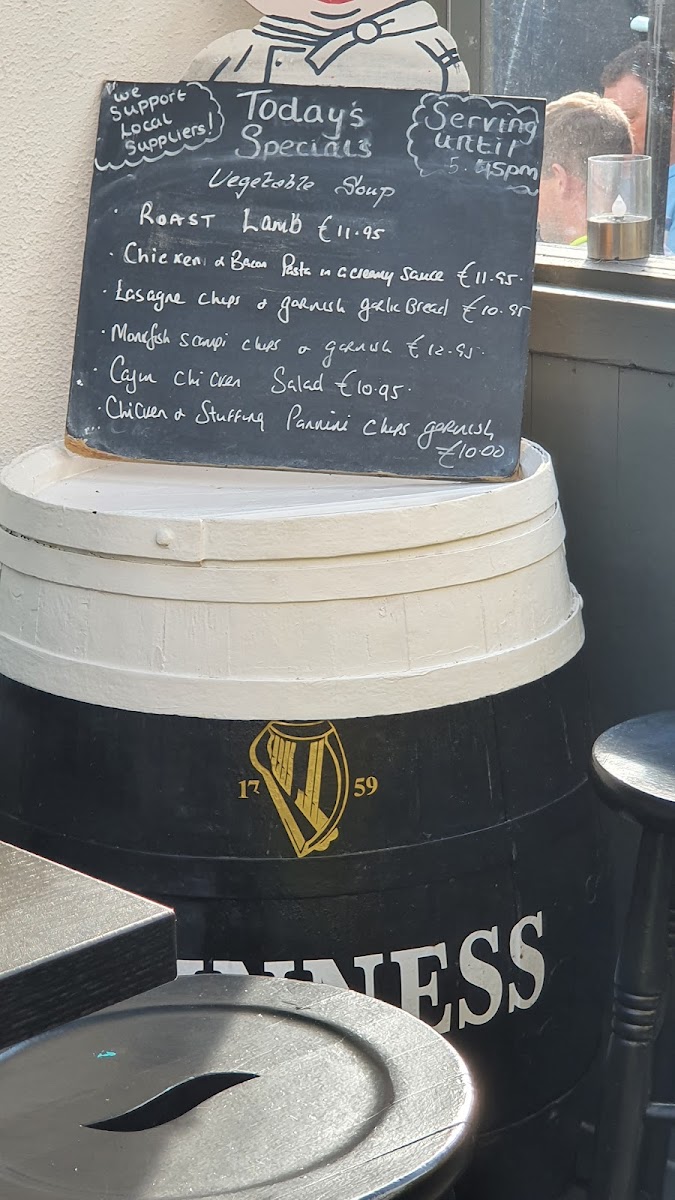 we
Support
Local
Suppliers!
Today's
Specials
Serving
until
5.45pm
Vegetable Soup
· ROAST Lamb €11.95
· Chicken & Bacon Pasta in a creamy sauce €11.95.
· Lasagne chips & garnish garlic Bread €10.95
· Monkfish scampi chips & garnish €12.95.
· Cajun chicken Salad €10.95.
· Chicken & Stuffing Pannini chips garnish
€10.00
17 59
NNESS